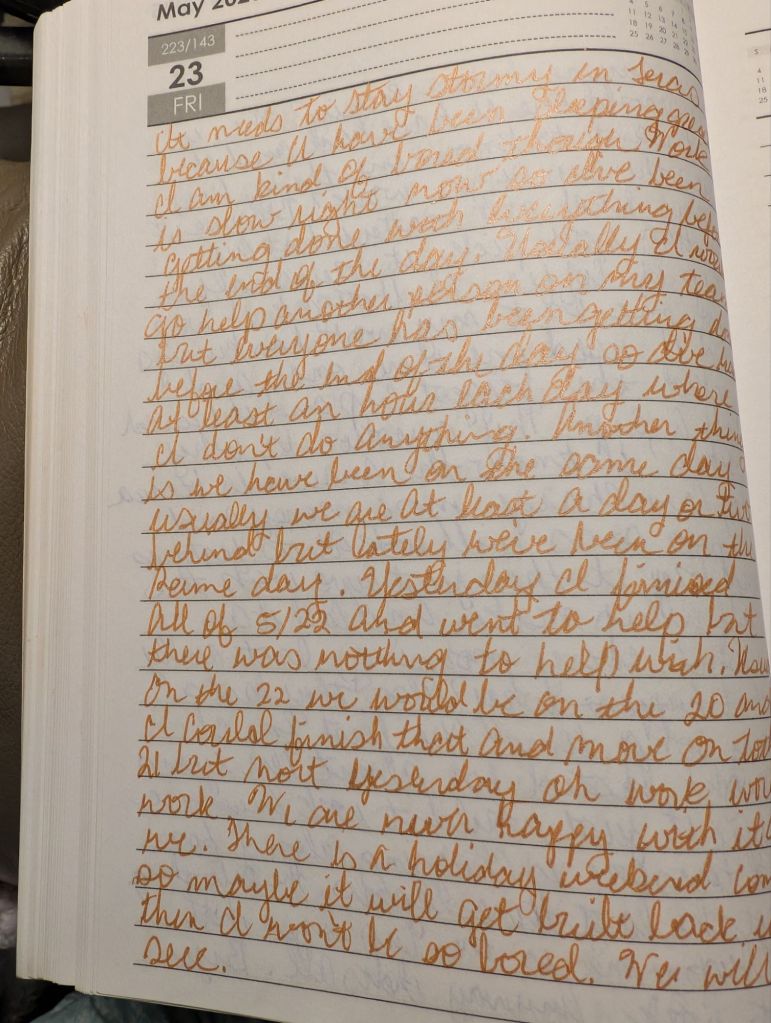 May
223/143
23
FRI
4 5 6 7 8
11 12 13 14
18 19 20 21
25 26 27 28
It needs to stay stormy in Texas
because I have been sleeping
I am kind of bored though. Work
is slow right now so I've been
getting done with everything
the end of the day. Usually I
go help another person on my
but everyone has been getting
before the end of the day so I've
at least an hour each day where
I don't do anything. Another
is we have been on the same day
usually we are at least a day or
behind but lately we've been on
same day. Yesterday I finised
all of 5/22 and went to help but
there was nothing to help wish.
On the 22 we would be on the 20 and
I could finish that and move on
21 but not yesterday oh work
work. We are never happy with it
we. There is a holiday weekend
so maybe it will get built back
then I won't be so bored. We will
see.
5
4
11
18
25